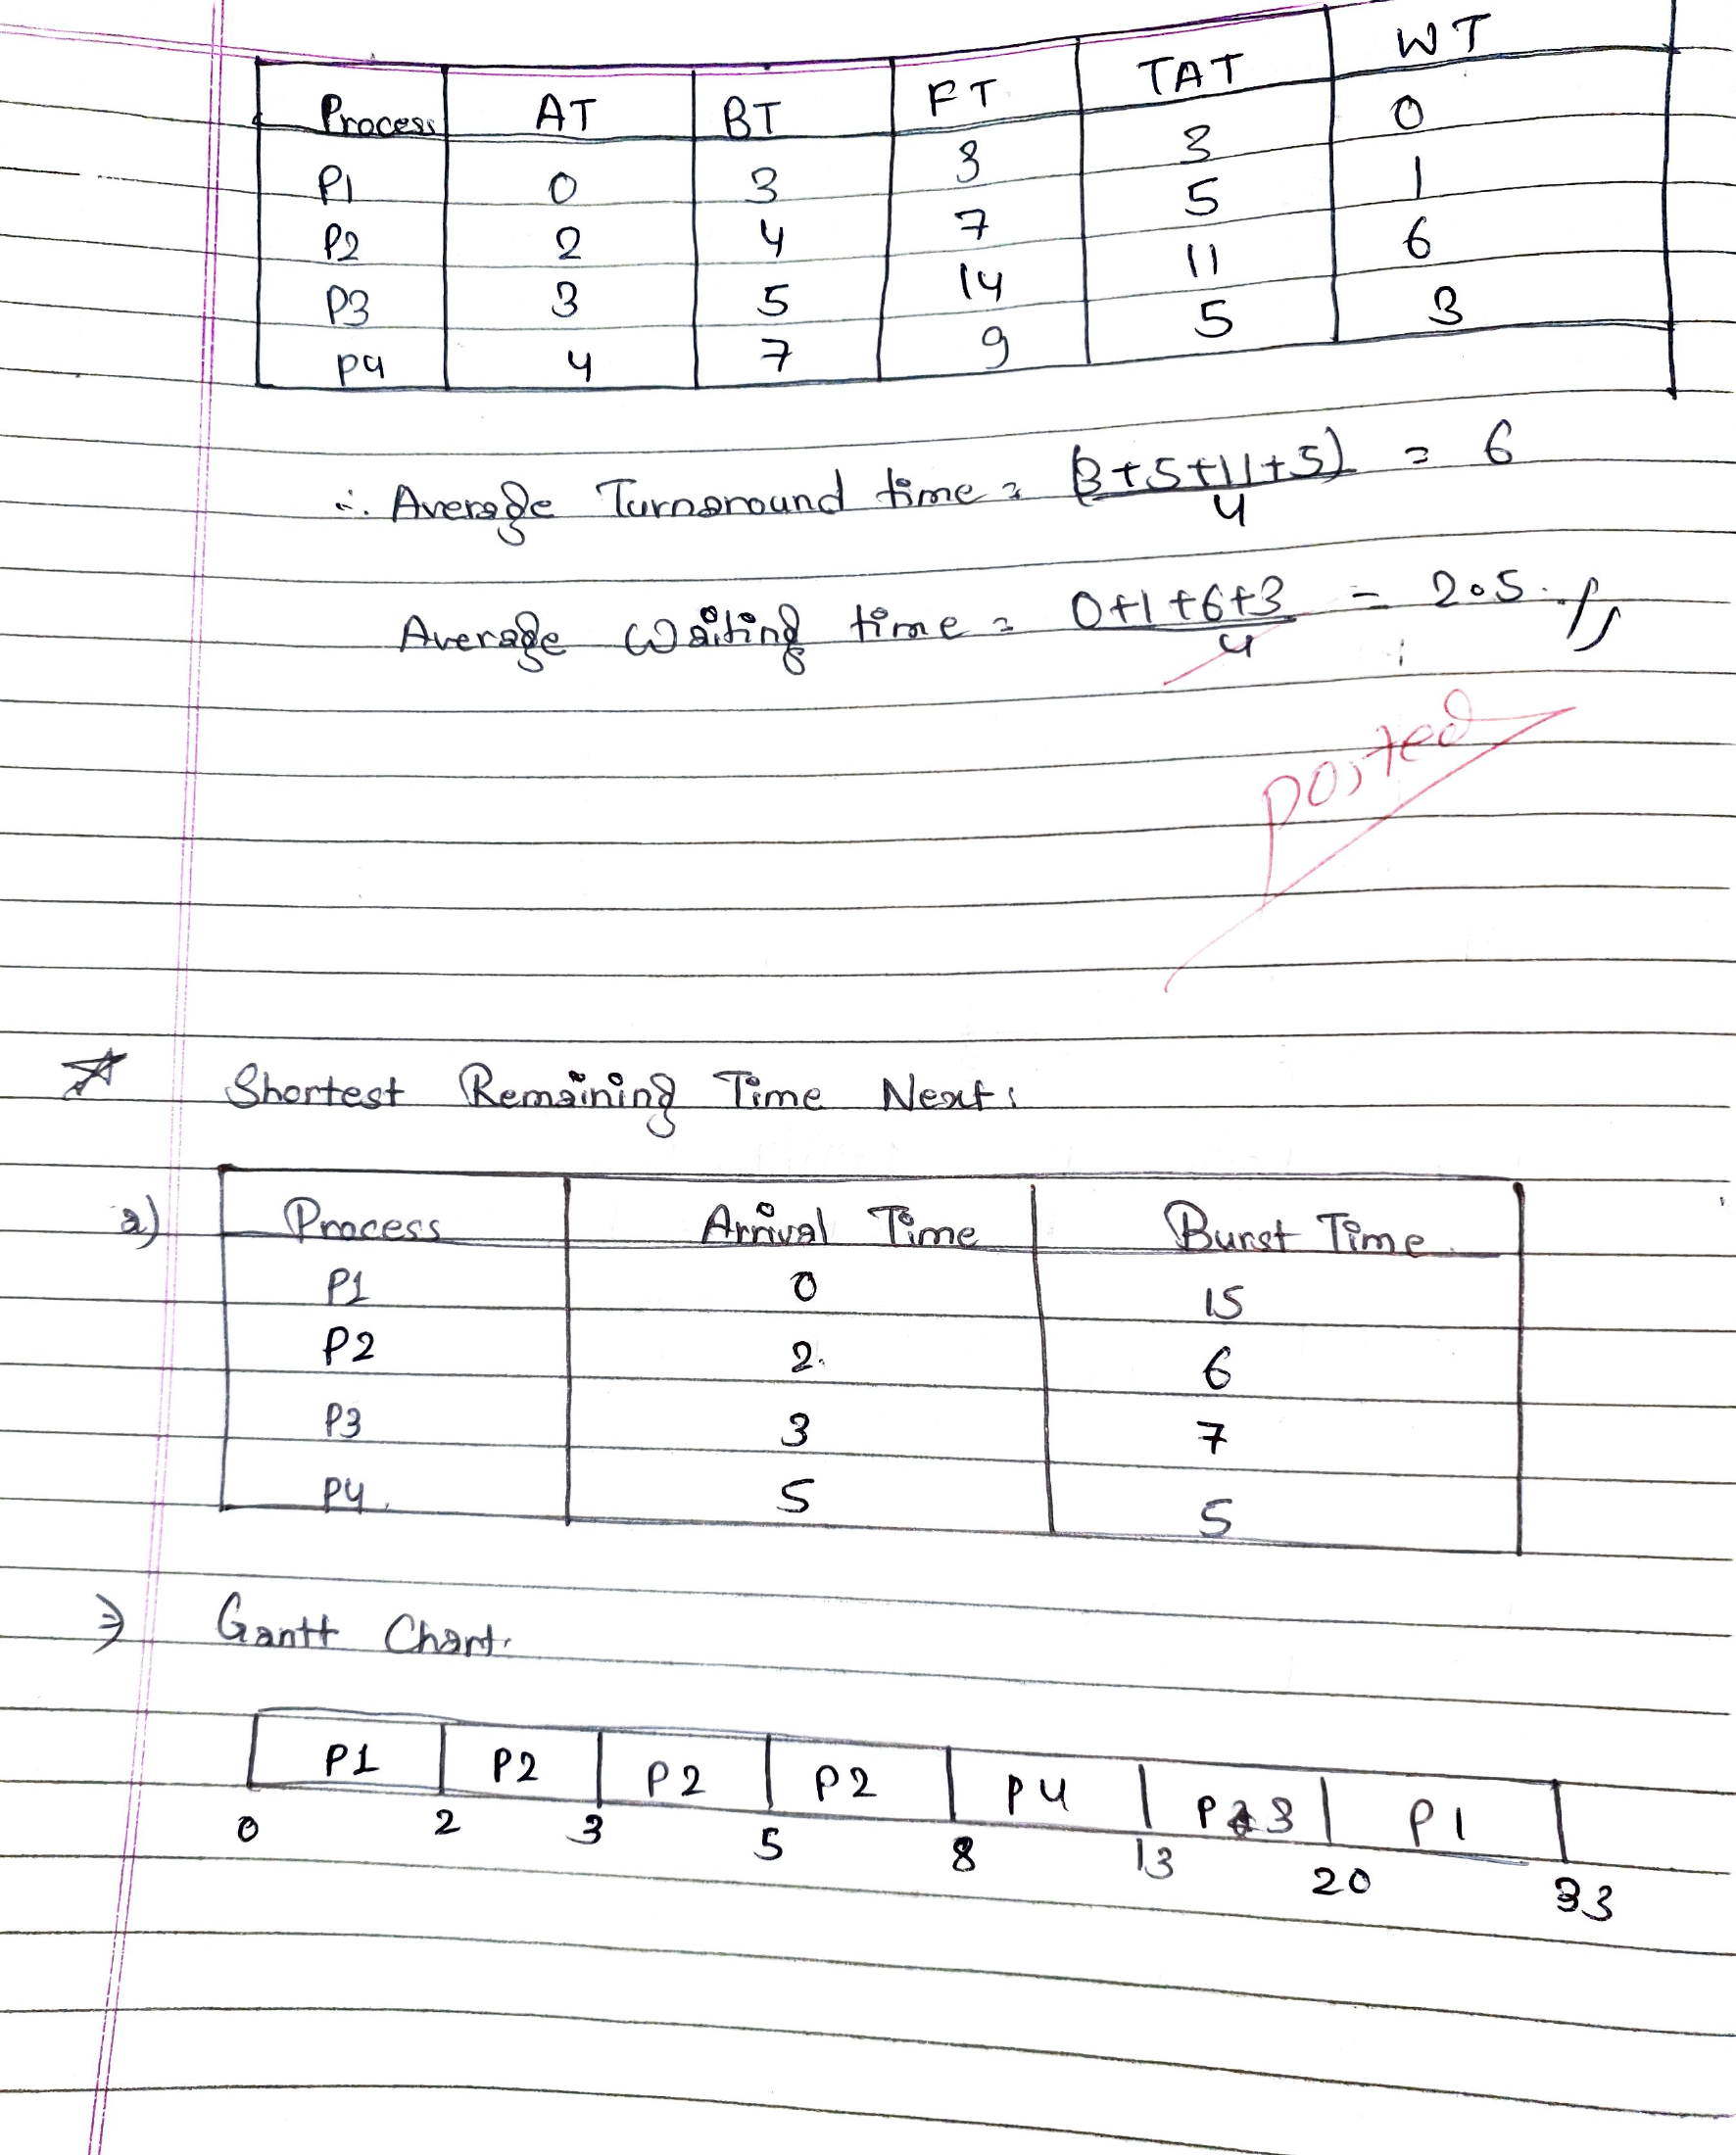 Process AT BT FT TAT WT
P1 0 3 3 3 0
P2 2 4 7 5 1
P3 3 5 14 11 6
P4 4 7 9 5 3
∴ Average Turnaround time = (3+5+11+5)/4 = 6
Average Waiting time = 0+1+6+3/4 = 2.5
posted
Shortest Remaining Time Next:
a) Process Arrival Time Burst Time
P1 0 15
P2 2 6
P3 3 7
P4 5 5
⇒ Gantt Chart.
P1 P2 P2 P2 P4 P3 P1
0 2 3 5 8 13 20 33